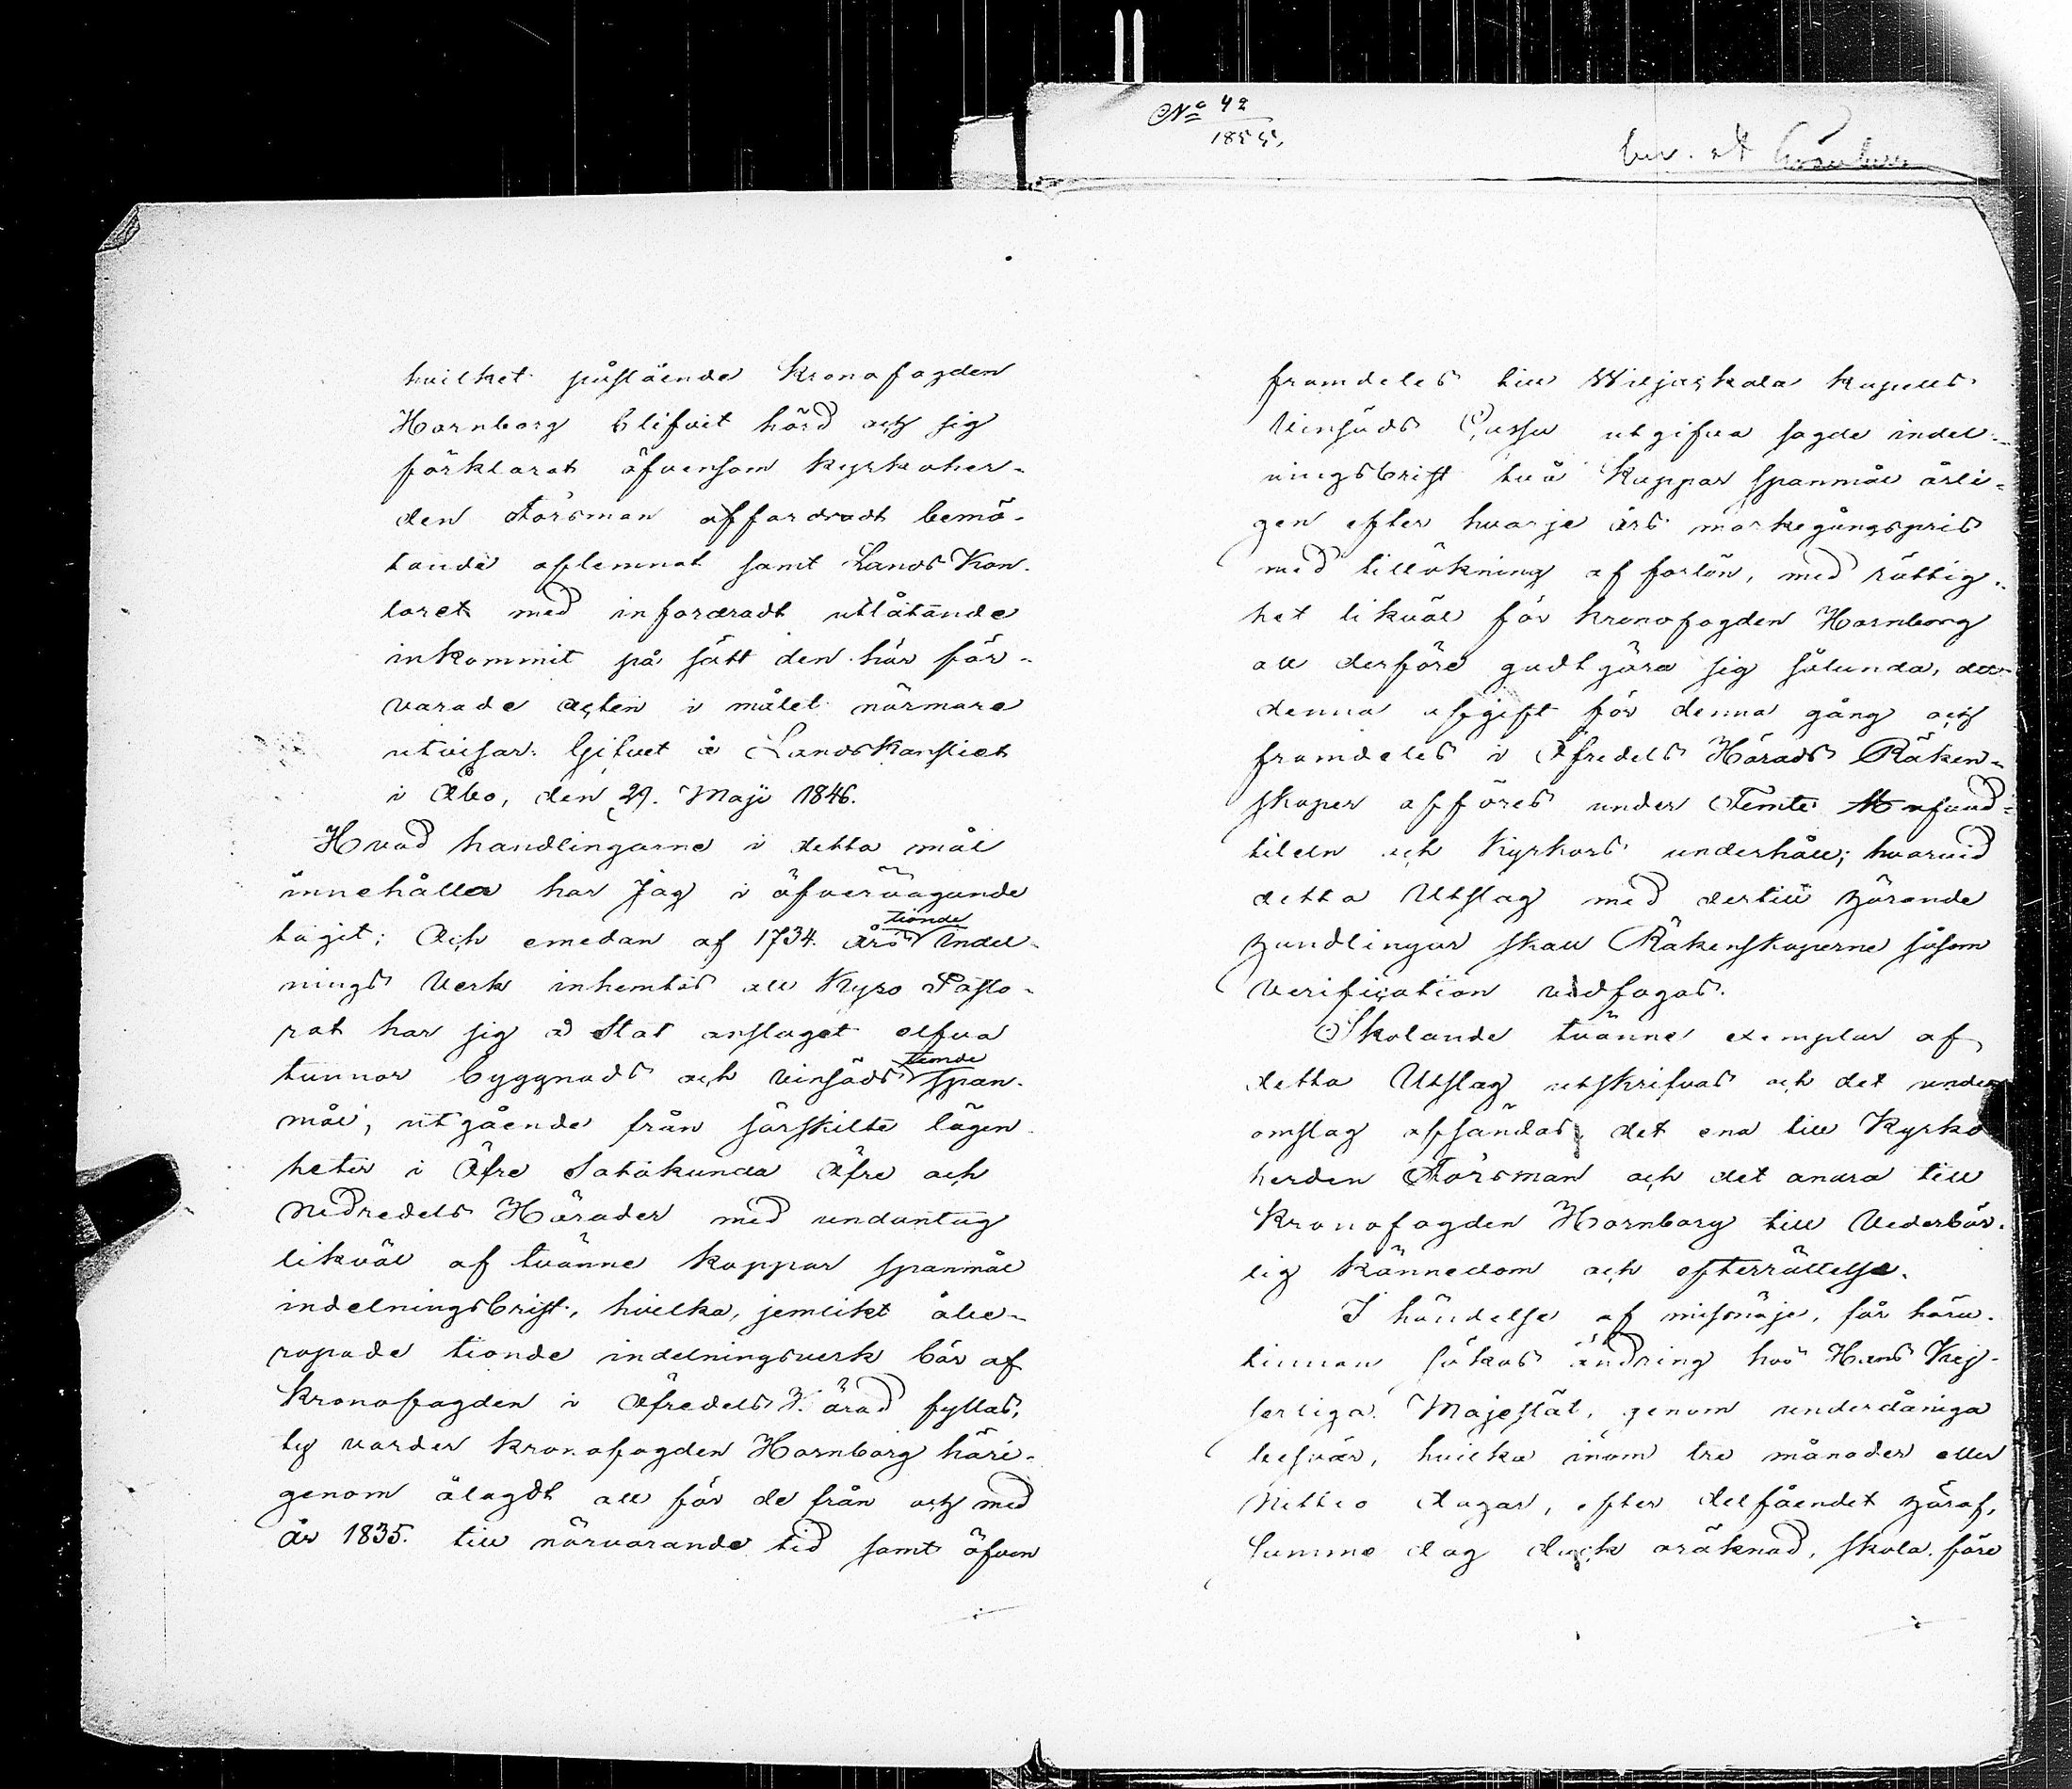 No 42
1855.
hvilket påstående Kronofogden
Hornborg blifvit hörd och sig
förklarat äfvensom Kyrkoher-
den Törsman affordradt bemö-
tande aflemnat samt LandsKon-
toret med infordradt utlåtande
inkommit på sätt den här för-
varade acten i målet närmare
utvisar. Gifvet å LandsKansliet
i Åbo, den 29. Maji 1846.
Hvad handlingarne i detta mål
innehålla har Jag i öfvervägande
tagit; Och emedan af 1734. års tionde Indel-
nings Verk inhemtas att Kyro Pasto-
rat har sig å Stat anslaget elfva
tunnor byggnads och vinsäds tionde span-
mål, utgående från särskilte lägen-
heter i Öfre Satakunda Öfre och
Nedredels Härader med undantag
likväl af tvänne kappar spanmål
indelningsbrist, hvilka, jemlikt åbe-
ropade tionde indelningsverk bör af
Kronofogden i Öfredels Härad fyllas,
ty varder Kronofogden Hornborg häri-
genom ålagdt att för de från och med
år 1835. till närvarande tid samt äfven
framdeles till Wiljaskala kapells
Vinsäds Cassa utgifva sagde indel-
ningsbrist två Kappar spanmål årli-
gen efter hvarje års markegångspris
med tillökning af forlön, med rättig-
het likväl för kronofogden Hornborg
att derföre godtgöra sig sålunda, att
denna afgift för denna gång och
framdeles i Öfredels Härads Räken-
skaper afföres under Femte Hufvud-
titeln och Kyrkors underhåll; hvarvid
detta Utslag med dertill hörande
handlingar skall Räkenskaperne såsom
Verification vidfogas.
Skolande tvänne exemplar af
detta Utslag utskrifvas och det under
omslag afsändas, det ena till Kyrko
herden Törsman och det andra till
Kronofogden Hornborg till Vederbör-
lig kännedom och efterrättelse.
I händelse af missnöje, får häru-
tinnan sökas ändring hos Hans Kej-
serliga Majestät, genom underdåniga
besvär, hvilka inom tre månader eller
Nittio dagar, efter delfåendet häraf,
Samma dag dock oräknad, skola före